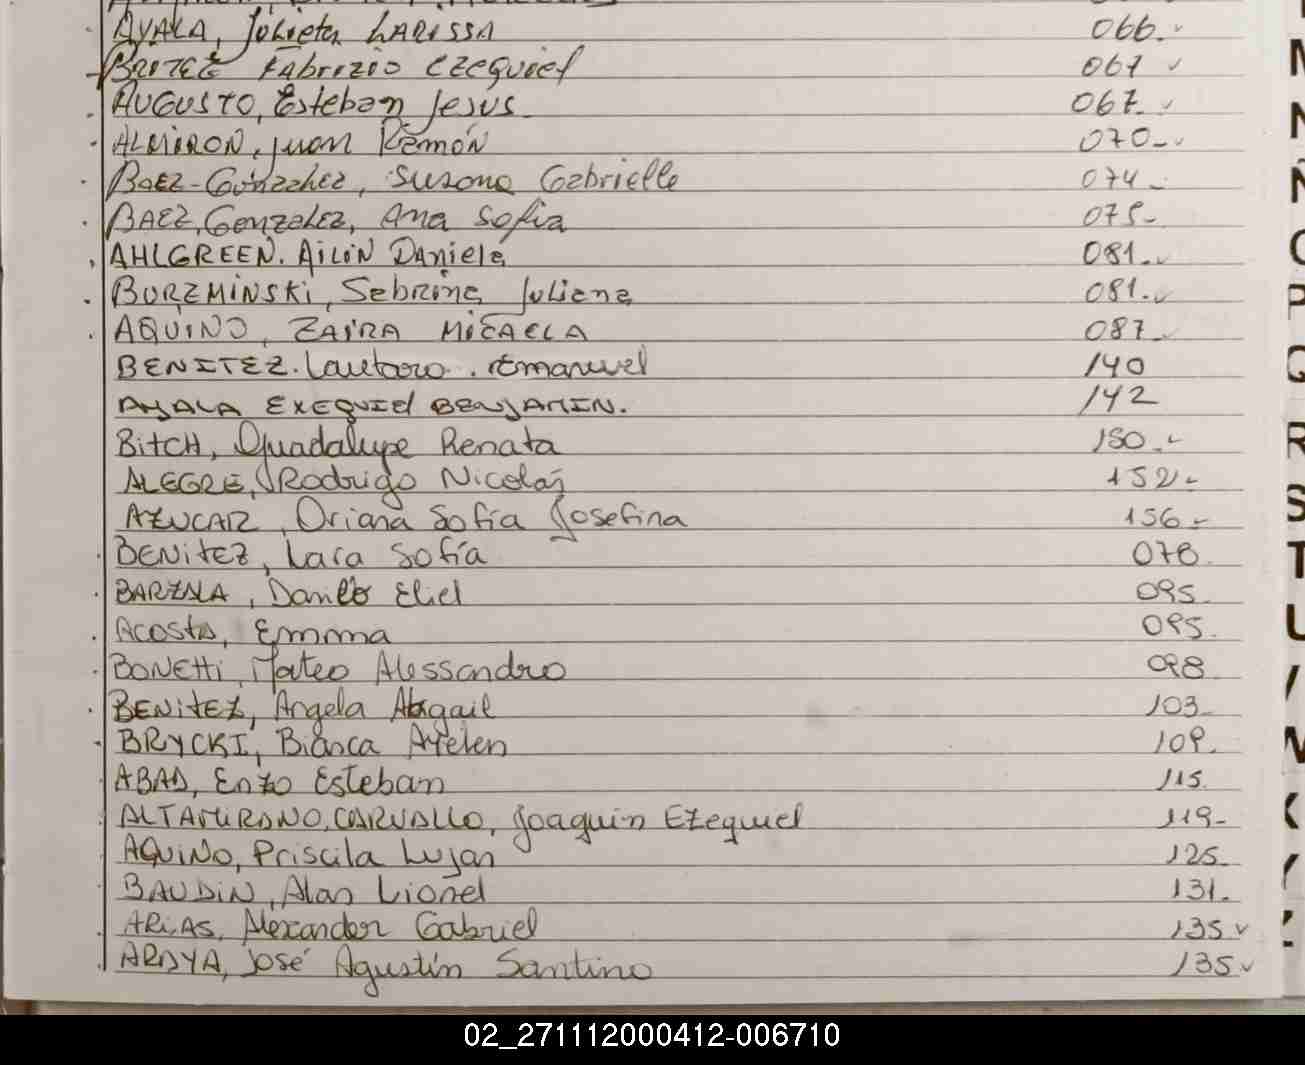 AYALA, Julieta LARISSA 066.
BRITEZ Fabrizio Ezequiel 067
AUGUSTO, Esteban Jesus. 067.
ALMIRON, Juan Ramón 070-
BAEZ-Gonzalez, Susana Gabrielle 074-
BAEZ, Gonzalez, Ana Sofia 075-
AHLGREEN. AiLiN Daniela 081.
BURZMINSKi, Sabrina Juliana 081.
AQUINO, ZAIRA MICAELA 087-
BENITEZ. Lautaro. Emanuel 140
AYALA EXEQUIEL BENJAMIN. 142
BitCH, Guadalupe Renata 150.
ALEGRE, Rodrigo Nicolás 152-
AZUCAR, Oriana Sofía Josefina 156-
BENitEZ, Lara Sofía 078.
BARZALA, Danilo Eliel 095.
ACOStA, Emma 095.
BONEtti, Mateo Alessandro 098.
BENitEZ, Angela Abigail 103-
BRYCKI, Bianca Ayelen 109.
ABAD, Enzo Esteban 115.
ALTAMIRANO, CARVALLO, Joaquin Ezequiel 119-
AQUiNO, Priscila Lujan 125.
BAUDiN, Alan Lionel 131.
ARiAS, Alexander Gabriel 135
ARAYA, José Agustín Santino 135
02_271112000412-006710